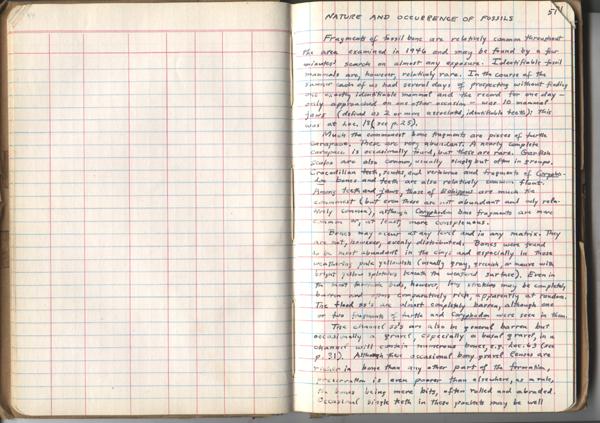 57
NATURE AND OCCURRENCE OF FOSSILS
Fragments of fossil bone are relatively common throughout
the area examined in 1946 and may be found by a few
minutes' search on almost any exposure. Identifiable fossil
mammals are, however, relatively rare. In the course of the
summer each of us had several days of prospecting without finding
one exactly identifiable mammal and the record for one day—
only approached on one other occasion — was 10 mammal
jaws (defined as 2 or more associated, identifiable teeth): this
was at Loc. (see p. 25).
Much the commonest bone fragments are pieces of turtle
carapace. These are very abundant. A nearly complete
carapace is occasionally found, but these are rare. Garfish
scales are also common, usually singly but often in groups.
Crocodilian teeth, scutes, and vertebrae and fragments of Corypho-
don bones and teeth are also relatively common.
Among teeth and jaws, those of Eohippus are much the
commonest (but even these are not abundant and only rela-
tively common), although Coryphodon bone fragments are more
common or, at least, more conspicuous.
Bones may occur at any level and in any matrix. They
are not, however, evenly distributed. Bones were found
to be most abundant in the clays and especially in those
weathering pale yellowish (usually gray, greenish, or mauve with
bright yellow splotches beneath the weathered surface). Even in
the most favorable beds, however, long stretches may be completely
barren and others comparatively rich, apparently at random.
The flood ss's are almost completely barren, although one
or two fragments of turtle and Coryphodon were seen in them.
The channel ss's are also in general barren but
occasionally a gravel, especially a basal gravel, in a
channel will contain numerous bones, e.g. Loc. 63 (see
p. 31). Although these occasional bony gravel lenses are
richer in bone than any other part of the formation,
preservation is even poorer than elsewhere, as a rule,
the bones being mere bits, often rolled and abraded.
Occasional single teeth in these pockets may be well